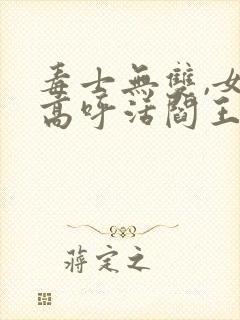 毒士無雙,女
高呼活閻王
蔣定之